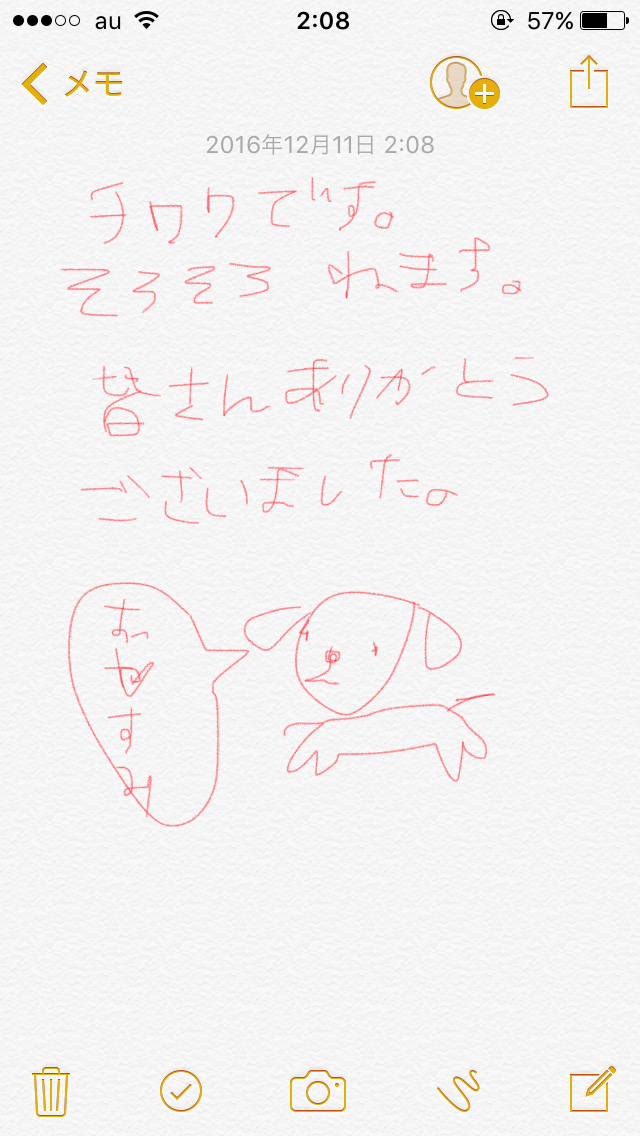 au 2:08 57%
メモ
2016年12月11日 2:08
チワワです。
そろそろ ねます。
皆さんありがとう
ございました。
おやすみ